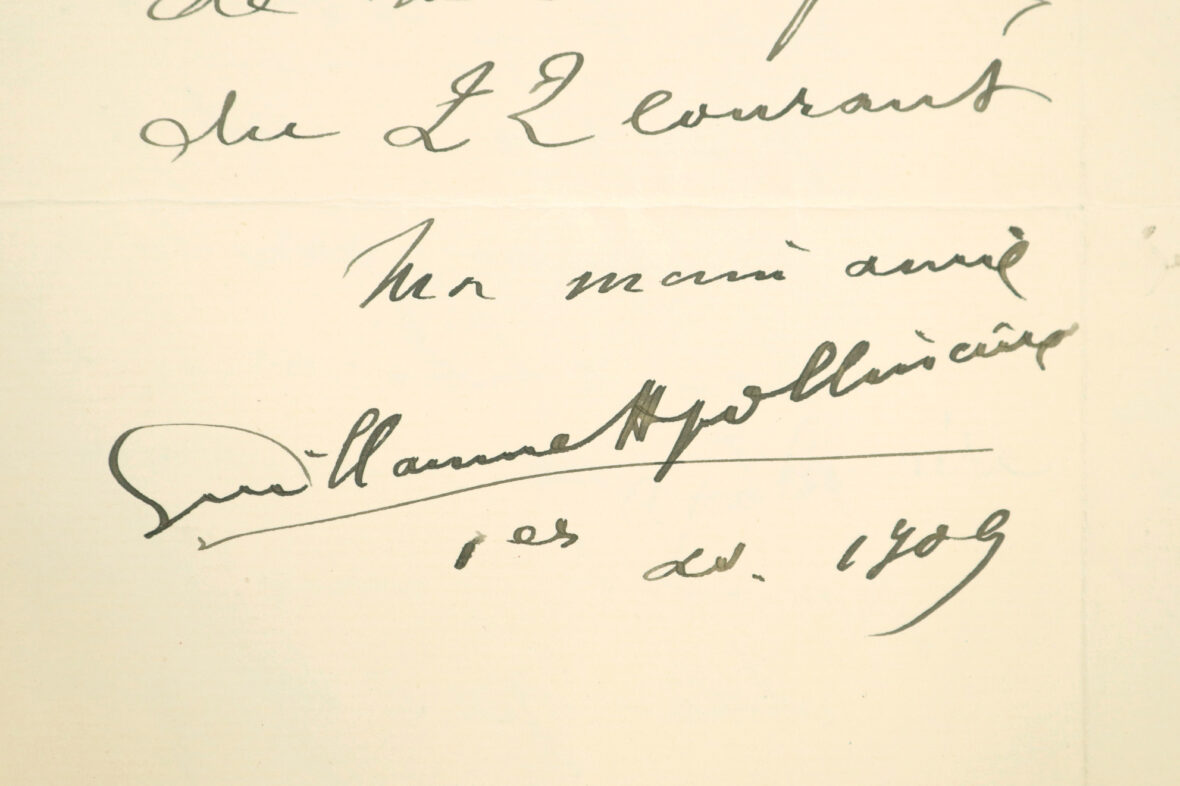 de
du 22 courant
Ma main amie
Guillaume Apollinaire
1er av. 1909